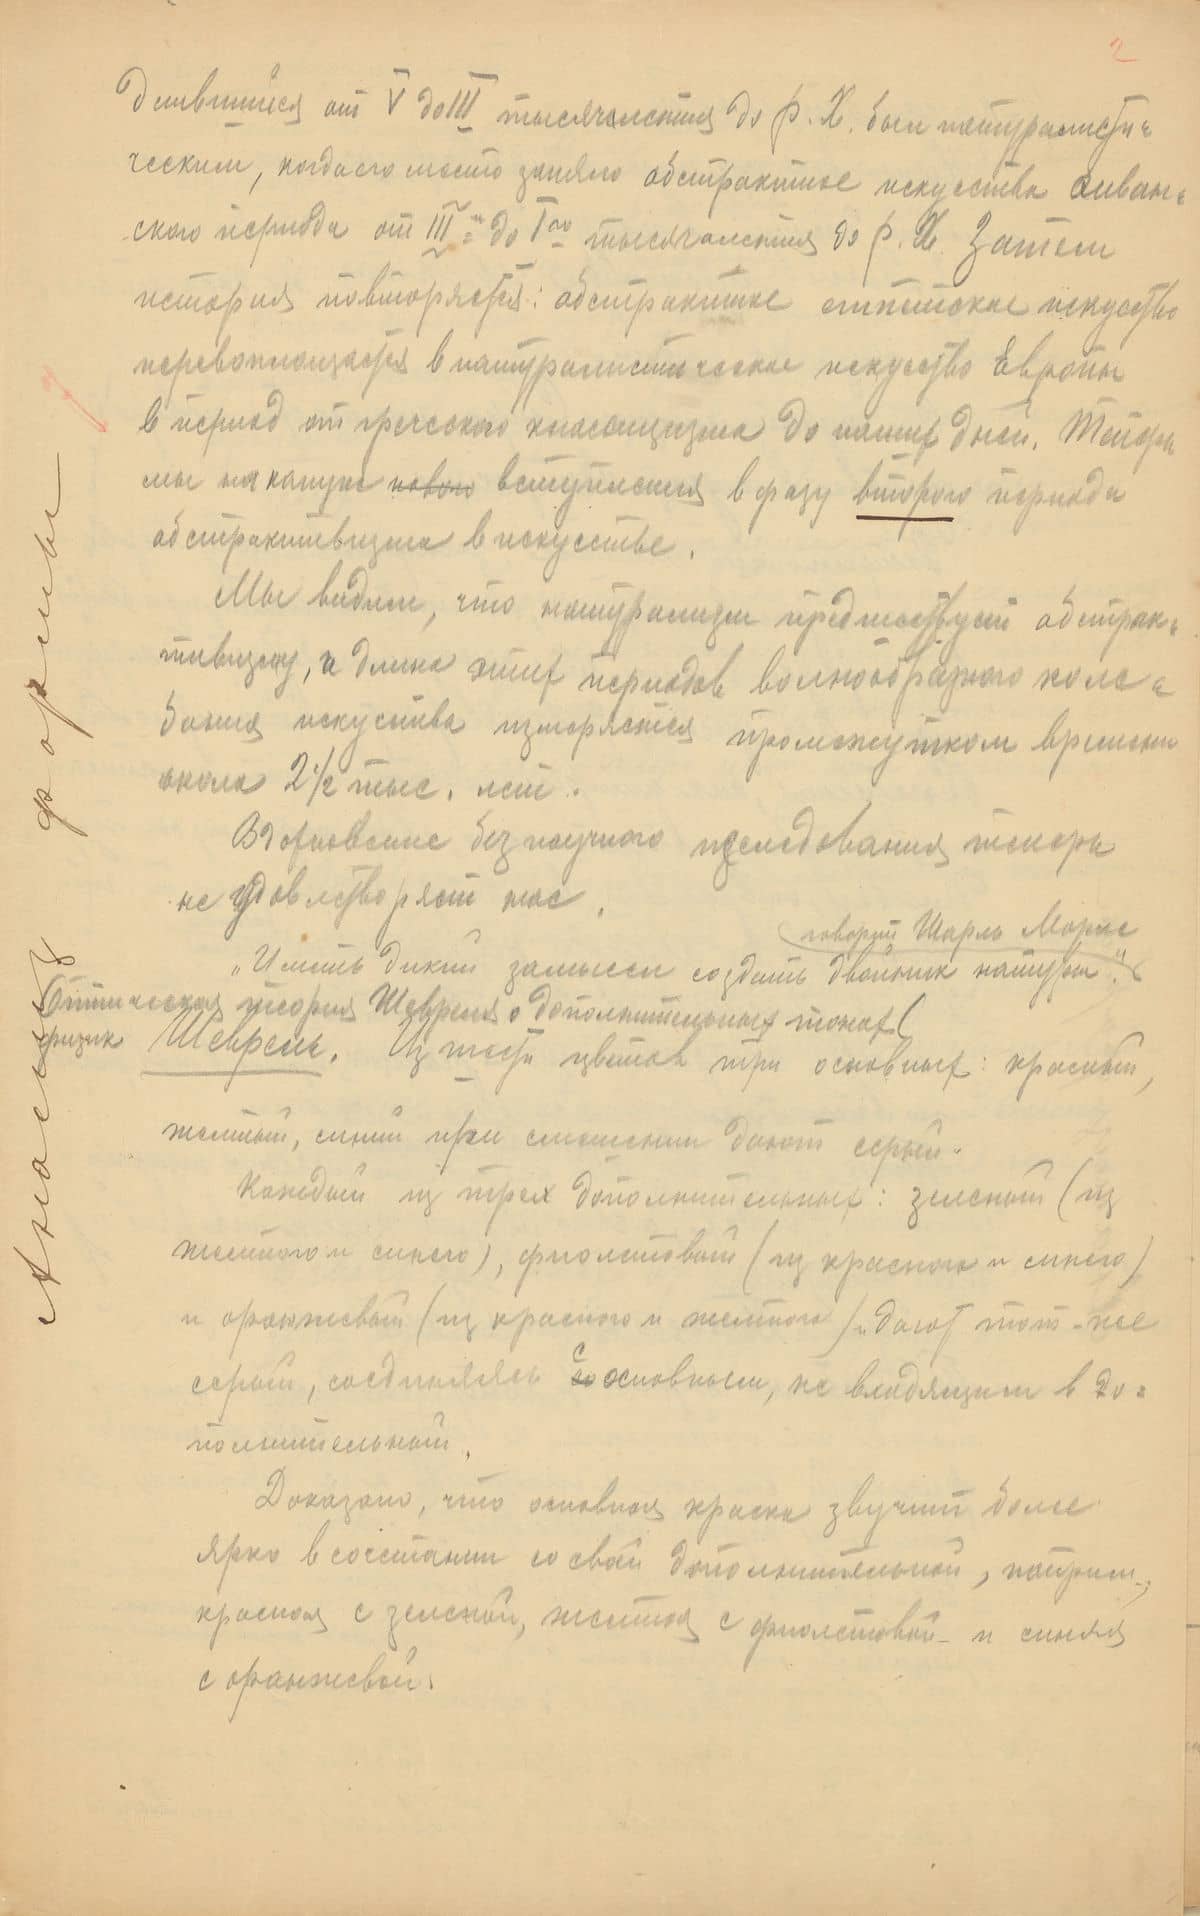 2
длившийся от V до III тысячелетия до р. Х. был натуралисти-
ческим, когда его место заняло абстрактное искусство
ского периода от III го до I го тысячелетия до р. Х. Затем
история повторяется: абстрактное египетское искусство
перевоплощается в натуралистическое искусство Европы
в период от греческого классицизма до наших дней. Теперь
мы накануне вступления в фазу второго периода
абстрактивизма в искусстве.
Мы видим, что натурализм предшествует абстрак-
тивизму, и длина этих периодов волнообразного коле-
бания искусства измеряется промежутком времени
около 2 1/2 тыс. лет.
Вдохновение без научного изследования теперь
не удовлетворяет нас.
говорит Шарль Морис
„Иметь дикий замысел создать двойник натуры."
Оптическая теория Шевреля о дополнительных тонах
физик Шеврель. Из шести цветов три основных: красный,
желтый, синий при смешении дают серый.
Каждый из трех дополнительных: зеленый (из
желтого и синего), фиолетовый (из красного и синего)
и оранжевый (из красного и желтого) дают тот-же
серый, соединяясь с основным, не входящим в до-
полнительный.
Доказано, что основная краска звучит более
ярко в сочетании со своей дополнительной, наприм.,
красная с зеленой, желтая с фиолетовой и синяя
с оранжевой.
Анализ формы